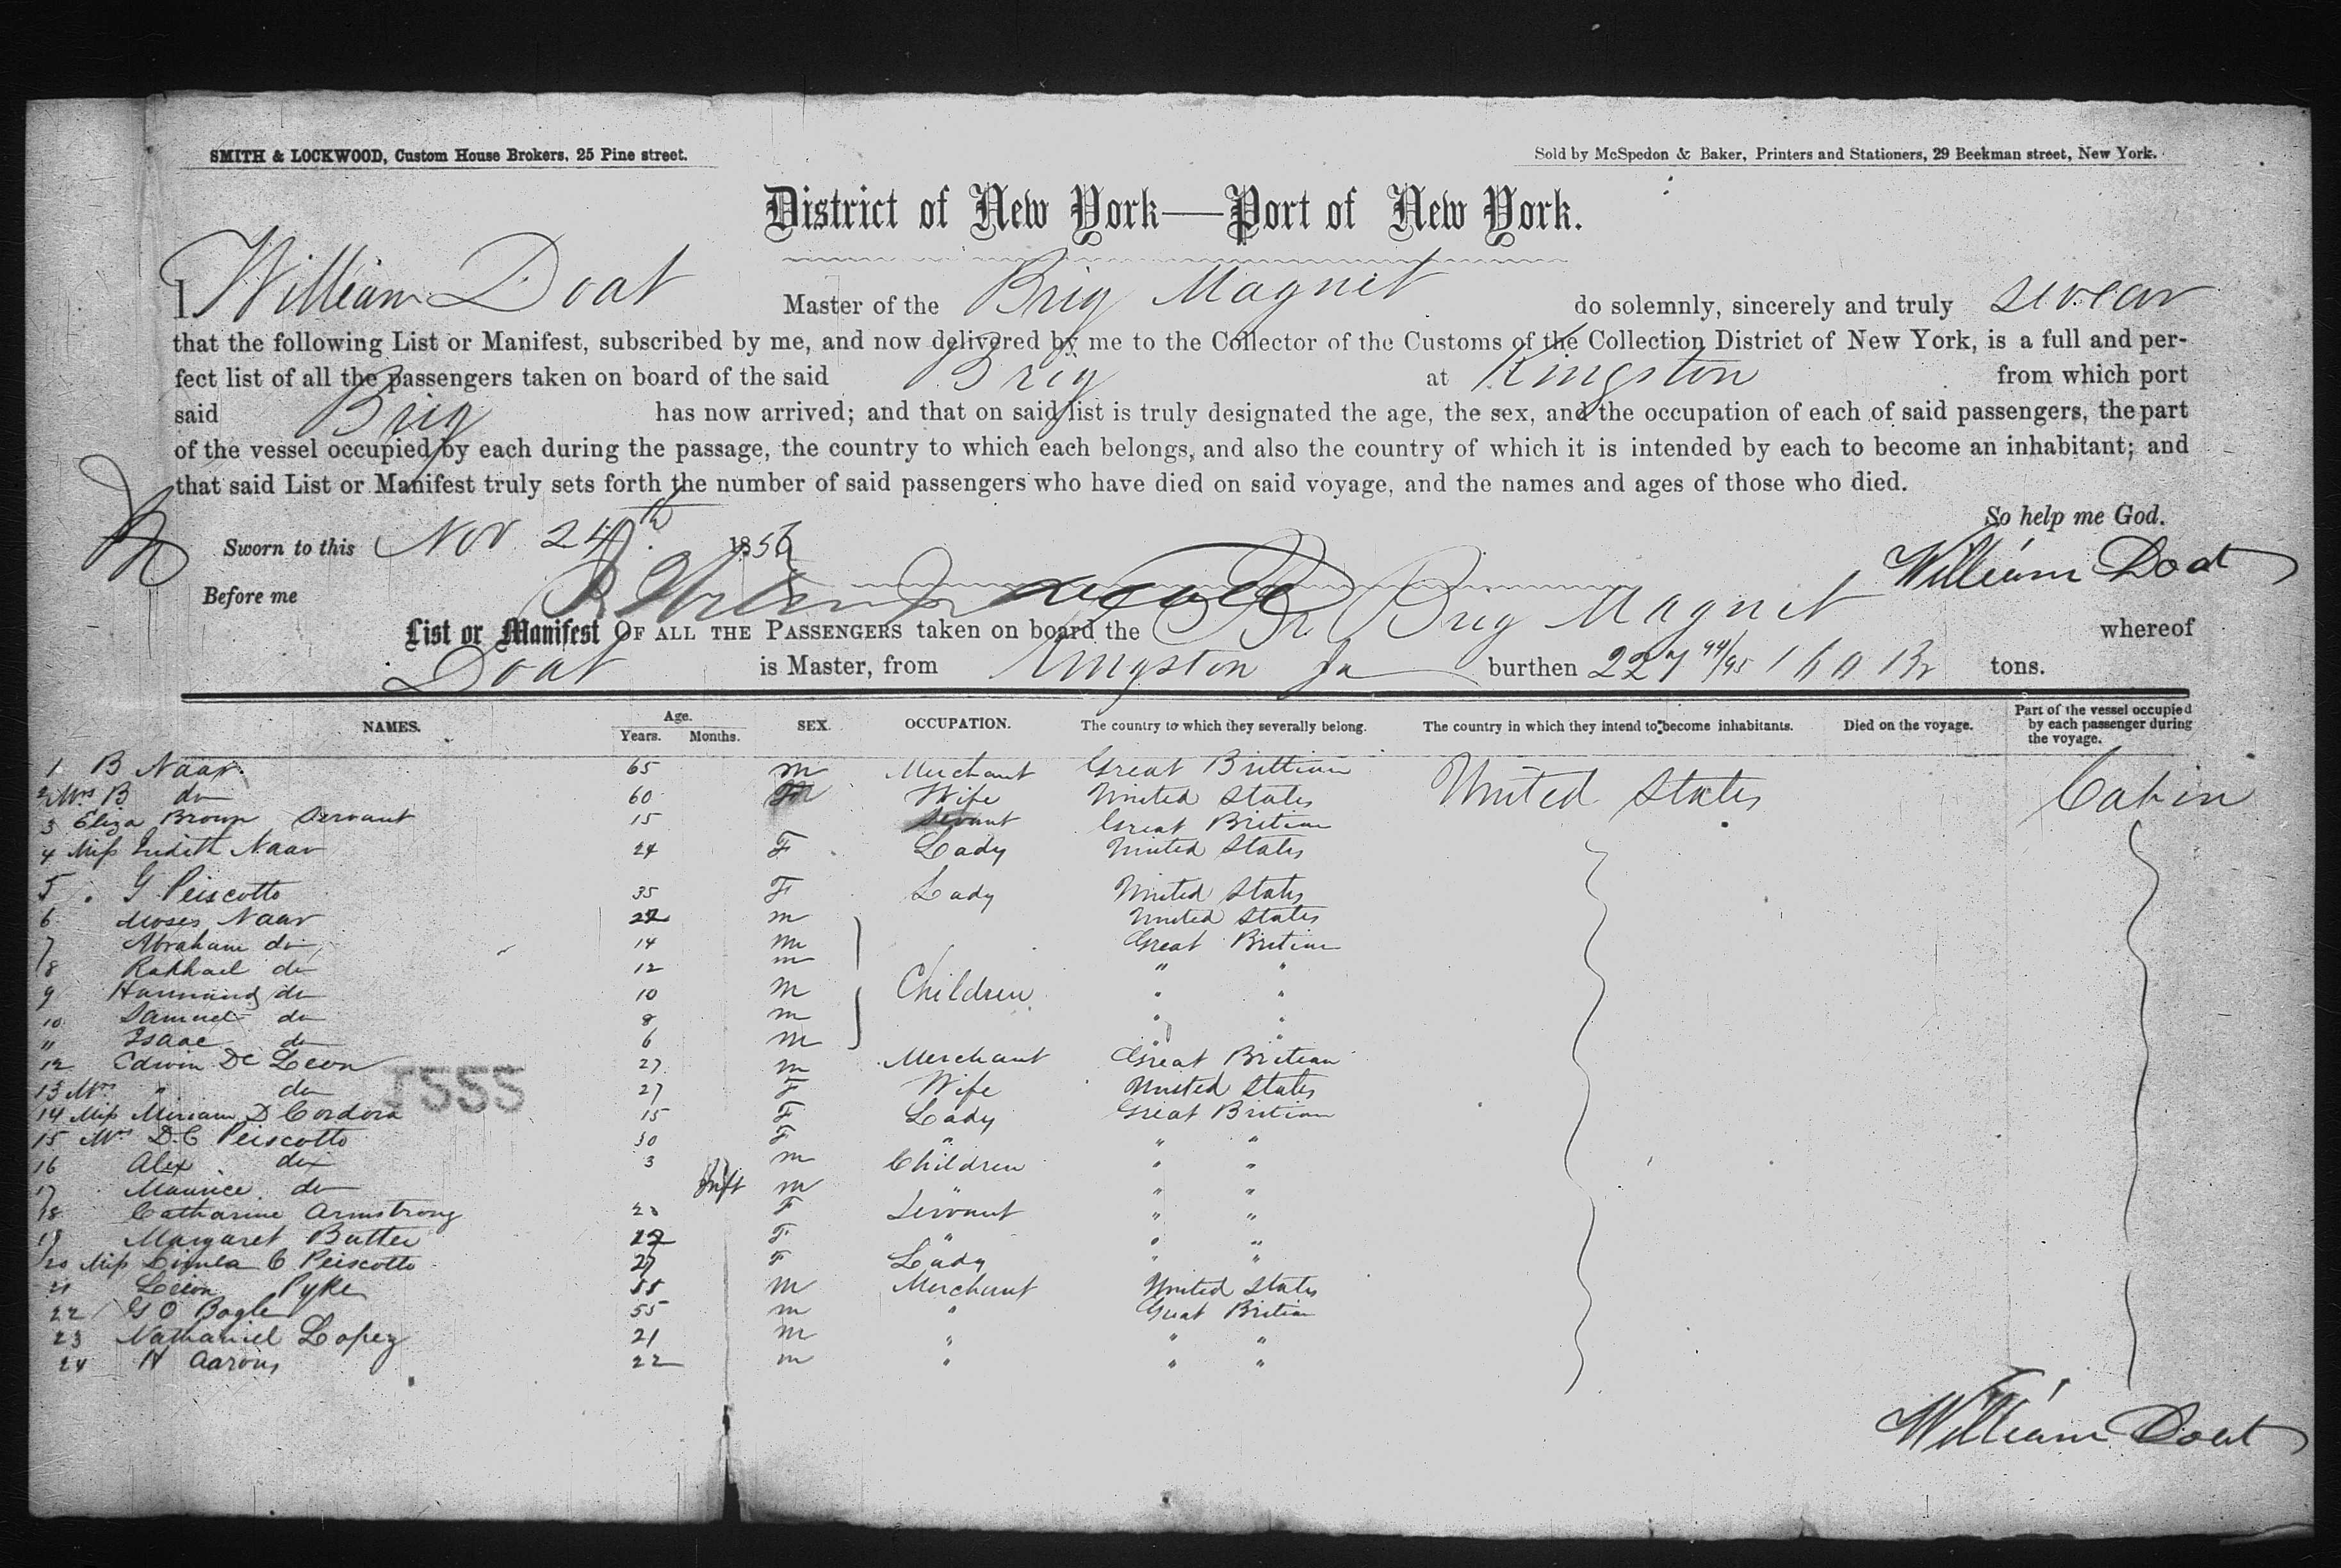 SMITH & LOCKWOOD, Custom House Brokers, 25 Pine street. Sold by McSpedon & Baker, Printers and Stationers, 29 Beekman street, New York.
District of New York—Port of New York.
I William Doat Master of the Brig Magnet do solemnly, sincerely and truly swear
that the following List or Manifest, subscribed by me, and now delivered by me to the Collector of the Customs of the Collection District of New York, is a full and per-
fect list of all the passengers taken on board of the said Brig at Kingston from which port
said Brig has now arrived; and that on said list is truly designated the age, the sex, and the occupation of each of said passengers, the part
of the vessel occupied by each during the passage, the country to which each belongs, and also the country of which it is intended by each to become an inhabitant; and
that said List or Manifest truly sets forth the number of said passengers who have died on said voyage, and the names and ages of those who died.
So help me God.
Sworn to this Nov 24th 1856 William Doat
Before me
List or Manifest OF ALL THE PASSENGERS taken on board the Br Brig Magnet whereof
Doat is Master, from Kingston Ja burthen 227 94/95 tons.
NAMES. Age. Years. Months. SEX. OCCUPATION. The country to which they severally belong. The country in which they intend to become inhabitants. Died on the voyage. Part of the vessel occupied by each passenger during the voyage.
1 B Naar 65 m Merchant Great Brittian United States Cabin
2 Mrs B do 60 F Wife United States
3 Eliza Brown Servant 15 Servant Great Britian
4 Miss Judith Naar 24 F Lady United States
5 " G Peiscotto 35 F Lady United States
6 Moses Naar 22 m United States
7 Abraham do 14 m Great Britian
8 Raphael do 12 m " "
9 do 10 m Children " "
10 Samuel do 8 m " "
11 Isaac do 6 m " "
12 Edwin De Leon 27 m Merchant Great Britian
13 Mrs " do 27 F Wife United States
14 Miss Miriam D Cordova 15 F Lady Great Britian
15 Mrs D.C Peiscotto 30 F " " "
16 Alex do 3 m Children " "
17 Maurice do Inft m " " "
18 Catharine Armstrong F Servant " "
19 Margaret Butter 22 F " " "
20 Miss C Peiscotto 27 F Lady " "
21 Leon Pyke 55 m Merchant United States
22 G O Bogle 55 m " Great Britian
23 Nathaniel Lopez 21 m " " "
24 H Aarons 22 m " " "
1555
William Doat